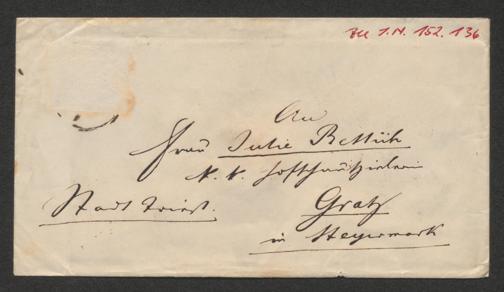 ZU I.N. 152.136
An
Frau Julie Rettich
k. k. Hofschauspielerin
Stadt Triest.
Gratz
in Steyermark